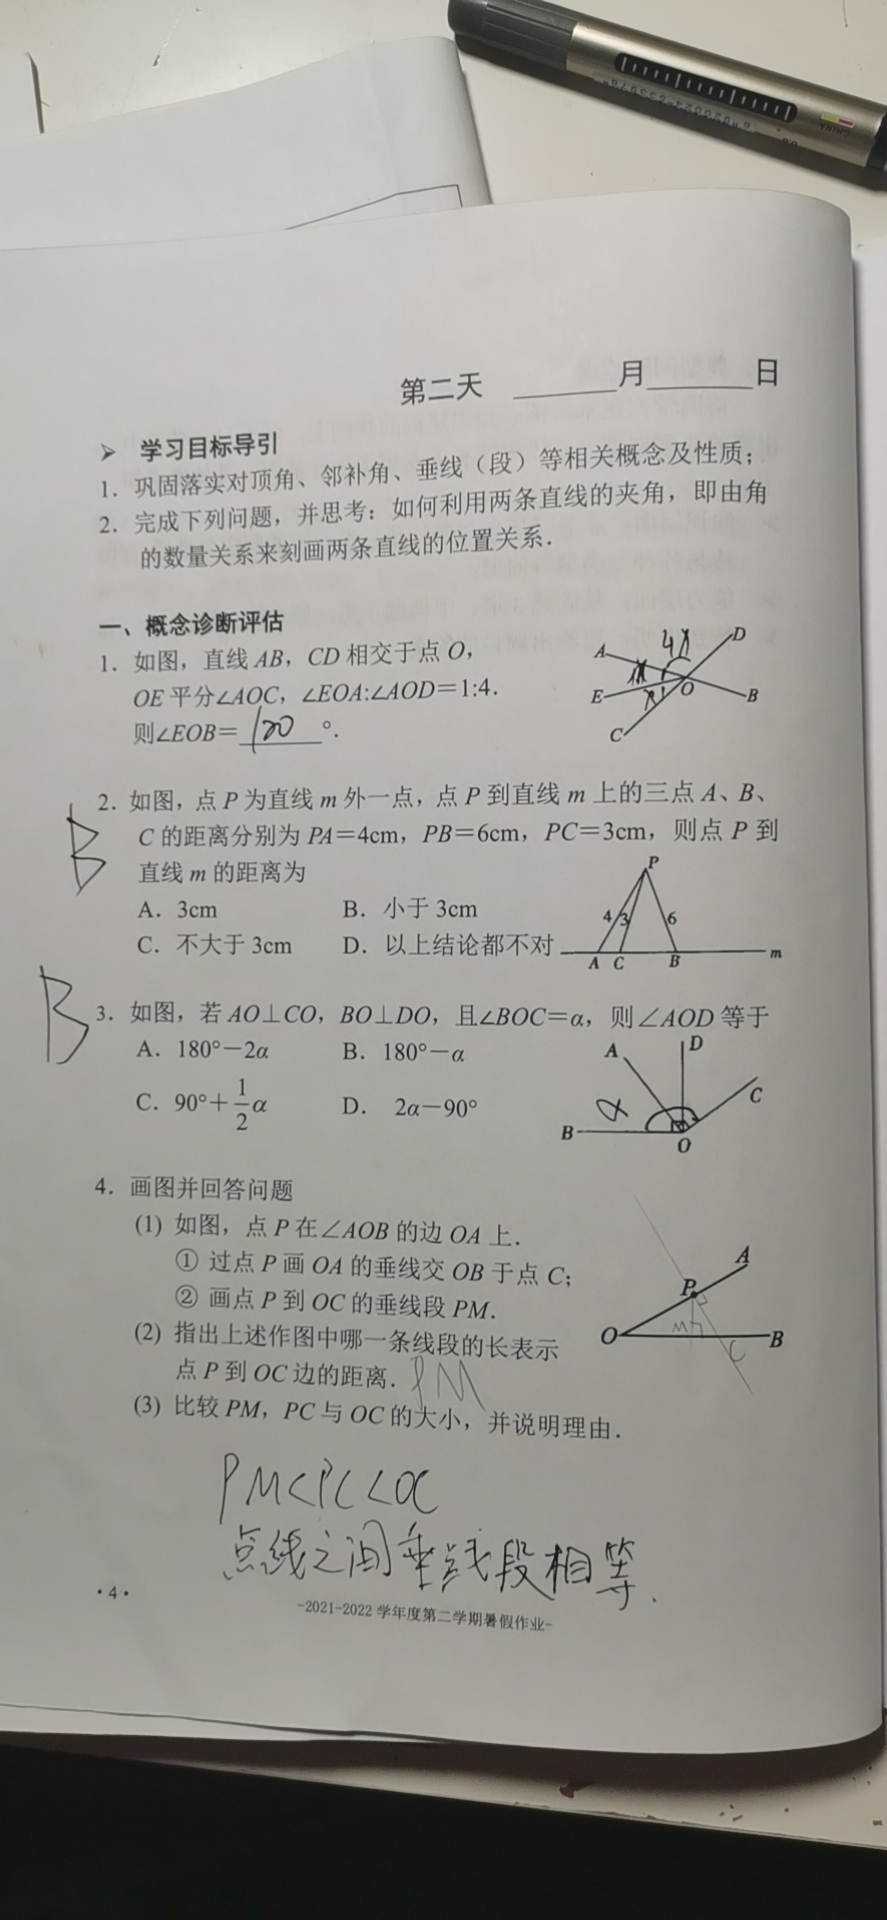 CHINA
第二天 ______月______日
➤ 学习目标导引
1. 巩固落实对顶角、邻补角、垂线（段）等相关概念及性质；
2. 完成下列问题，并思考：如何利用两条直线的夹角，即由角
的数量关系来刻画两条直线的位置关系．
一、概念诊断评估
1. 如图，直线 AB，CD 相交于点 O，
OE 平分∠AOC，∠EOA:∠AOD＝1:4．
则∠EOB＝ 120 °．
A
4x
D
E
x
O
B
C
2. 如图，点 P 为直线 m 外一点，点 P 到直线 m 上的三点 A、B、
B
C 的距离分别为 PA＝4cm，PB＝6cm，PC＝3cm，则点 P 到
直线 m 的距离为
A. 3cm B. 小于 3cm
C. 不大于 3cm D. 以上结论都不对
P
4 3 6
A C B m
B
3. 如图，若 AO⊥CO，BO⊥DO，且∠BOC＝α，则∠AOD 等于
A. 180°－2α B. 180°－α
C. 90°＋1/2α D. 2α－90°
A D
C
α
B O
4. 画图并回答问题
(1) 如图，点 P 在∠AOB 的边 OA 上．
① 过点 P 画 OA 的垂线交 OB 于点 C；
② 画点 P 到 OC 的垂线段 PM．
(2) 指出上述作图中哪一条线段的长表示
点 P 到 OC 边的距离． PM
(3) 比较 PM，PC 与 OC 的大小，并说明理由．
A
P
O M C B
PM<PC<OC
点线之间垂线段相等．
·4·
-2021-2022 学年度第二学期暑假作业-